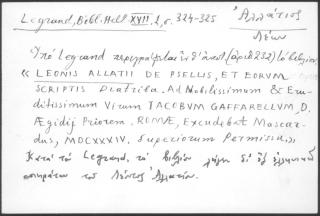 Legrand, Bibl. Hell. XVII, 1, σ. 324-325
Ἀλλάτιος
Λέων
Ὑπό Legrand περιγράφεται ἐν (ἀριθ 232) τό βιβλίον
« LEONIS ALLATII DE PSELLIS, ET EORUM
SCRIPTIS Diatriba. Ad Nobilissimum & Eru-
ditissimum Virum IACOBVM GAFFARELLVM, D.
Ægidij Priorem. ROMÆ, Excudebat Mascar-
dus, MDCXXXIV. Superiorum Permissu.»
Κατά τόν Legrand, τό βιβλίον λήγει δι' ἑξ ἑλληνικῶν
ποιημάτων τοῦ Λέοντος Ἀλλατίου.